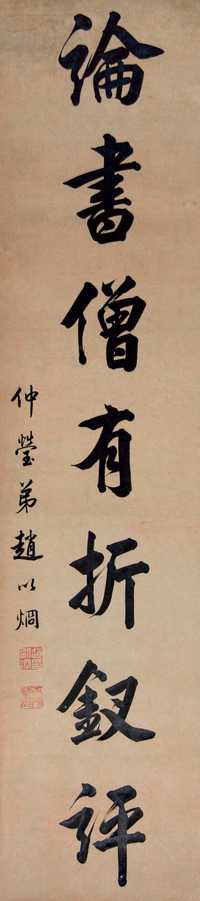 論書僧有折釵評
仲瑩弟趙以炯